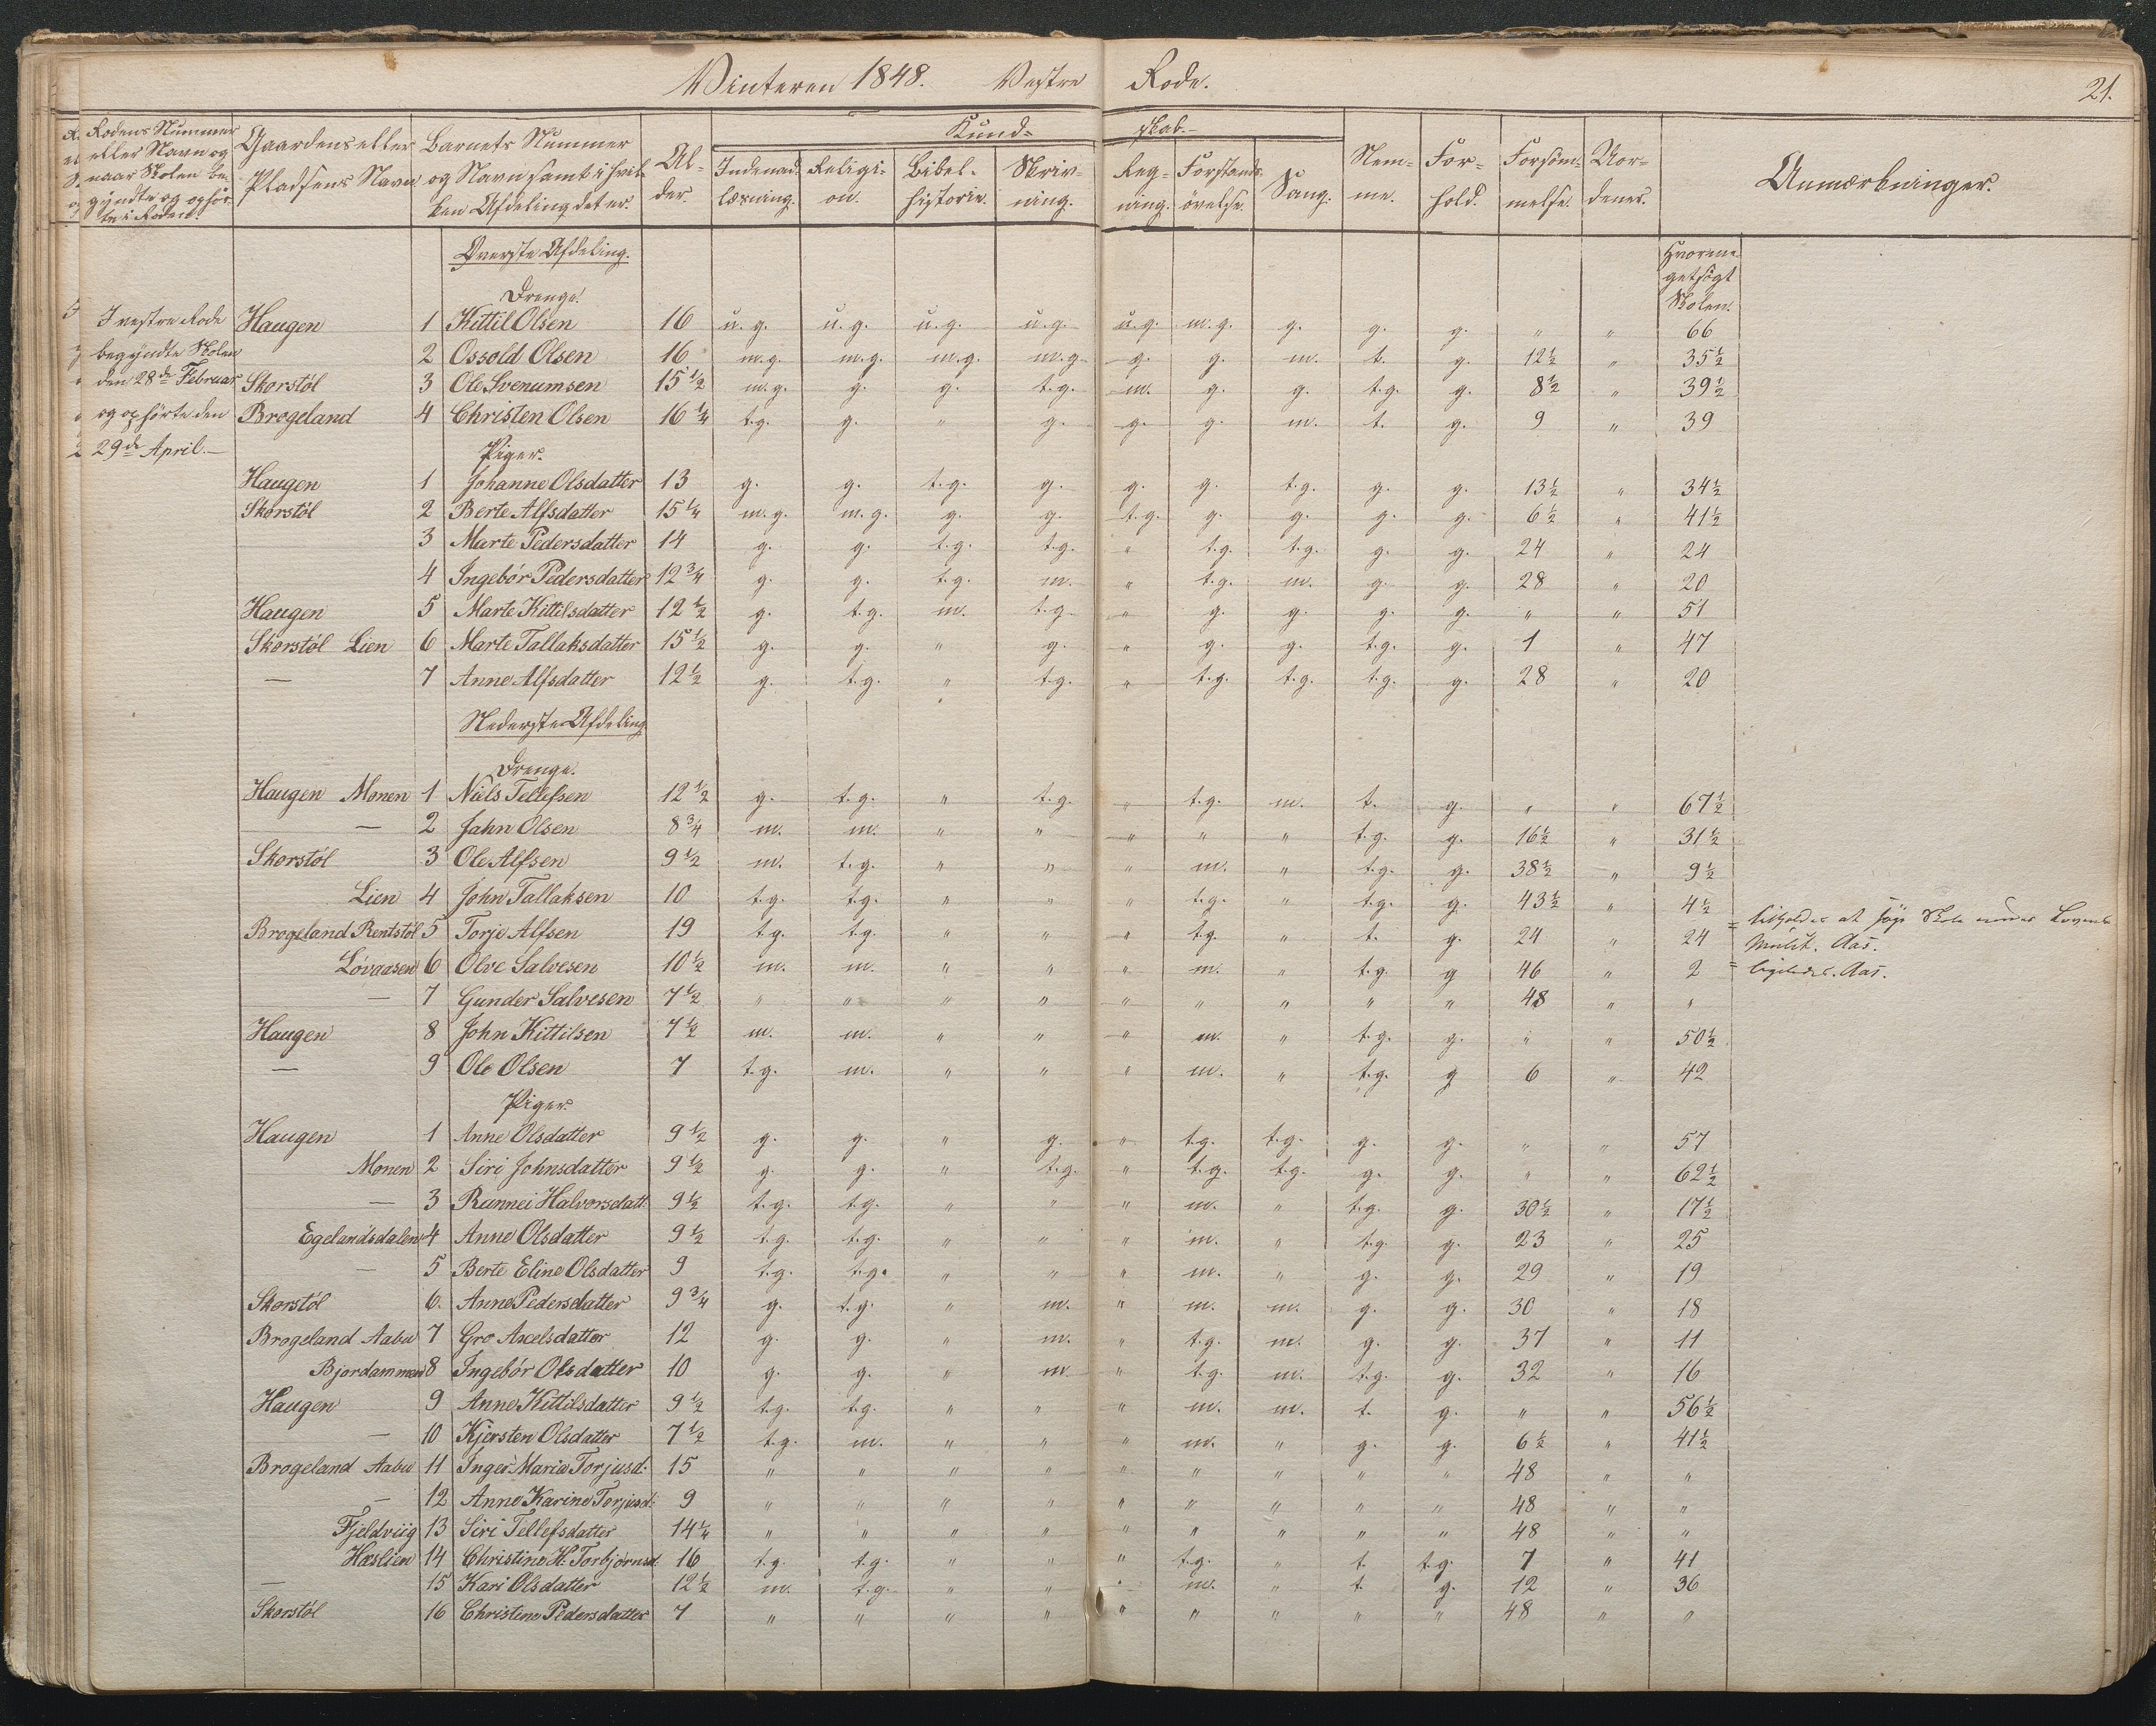 Vinteren 1848. Vestre Rode. 21.
Rodens Nummer eller Navn og naar Skolen be- gyndte og ophör- te i Roden. Gaardens eller Pladsens Navn Barnets Nummer og Navn samt i hvil- ken Afdeling det er. Al- der. Kund- skab. Indenad- læsning. Religi- on. Bibel- historie. Skriv- ning. Reg- ning. Forstands- övelse. Sang. Nem- me. For- hold. Forsöm- melse. Uor- denes. Anmærkninger.
Överste Afdeling.
Drenge.
Hvor me- get sögt Skolen.
I vestre Rode begyndte Skolen den 28de Februar og ophörte den 29de April.
Haugen 1 Kittil Olsen 16 u.g. u.g. u.g. u.g. u.g. m.g. g. g. g. " " 66
2 Ossold Olsen 16 m.g. m.g. m.g. m.g. g. g. m. t. g. 12½ " 35½
Skorstöl 3 Ole Svenumsen 15½ m.g. g. g. t.g. m. g. g. t.g. g. 8½ " 39½
Brogeland 4 Christen Olsen 16¼ t.g. g. " g. g. g. m. t. g. 9 " 39
Piger.
Haugen 1 Johanne Olsdatter 13 g. g. t.g. g. g. g. t.g. g. g. 13½ " 34½
Skorstöl 2 Berte Alfsdatter 15¼ m.g. m.g. g. g. t.g. g. g. g. g. 6½ " 41½
3 Marte Pedersdatter 14 g. g. t.g. t.g. " t.g. t.g. g. g. 24 " 24
4 Ingebör Pedersdatter 12¾ g. g. t.g. m. " t.g. m. g. g. 28 " 20
Haugen 5 Marte Kittilsdatter 12½ g. t.g. m. t.g. " g. g. g. g. " " 51
Skorstöl Lien 6 Marte Tallaksdatter 15½ g. g. " g. " g. g. t.g. g. 1 " 47
— 7 Anne Alfsdatter 12½ g. t.g. " t.g. " t.g. t.g. t.g. g. 28 " 20
Nederste Afdeling
Drenge.
Haugen Monen 1 Niels Tellefsen 12½ g. t.g. " t.g. " t.g. m. t. g. " " 67½
— 2 Jahn Olsen 8¾ m. m. " " " " " t.g. g. 16½ " 31½
Skorstöl 3 Ole Alfsen 9½ m. t.g. " " " m. " t.g. g. 38½ " 9½
Lien 4 John Tallaksen 10 t.g. t.g. " " " t.g. " t.g. g. 43½ " 4½
Brogeland Rentstöl 5 Torje Alfsen 19 t.g. t.g. " " " t.g. " t. g. 24 " 24 = tilholdes at søge Skole under Lovens Mulct. Aas.
Lövaasen 6 Olve Salvesen 10½ m. m. " " " m. " t.g. g 46 " 2 = ligeledes. Aas.
— 7 Gunder Salvesen 7½ " " " " " " " " " 48 " "
Haugen 8 John Kittilsen 7½ m. m. " " " m. " t.g. g. " " 50½
— 9 Ole Olsen 7 t.g. m. " " " m. " t.g. g 6 " 42
Piger.
Haugen 1 Anne Olsdatter 9½ g. g. " g. " t.g. t.g. g. g. " " 57
Monen 2 Siri Johnsdatter 9½ g. g. " t.g. " t.g. t.g. g. g. " " 62½
— 3 Rannei Halvorsdatt. 9½ t.g. t.g. " " " m. " t.g. g. 30½ " 17½
Egelandsdalen 4 Anne Olsdatter 9½ t.g. t.g. " " " m. " t.g. g. 23 " 25
— 5 Berte Eline Olsdatter 9 t.g. t.g. " " " m. " g. g. 29 " 19
Skorstöl 6. Anne Pedersdatter 9¾ g. t.g. " m. " m. m. g. g. 30 " 18
Brogeland Aabu 7 Gro Axelsdatter 12 g. g. " m. " t.g. m. g. g. 37 " 11
Bjordammen 8 Ingebör Olsdatter 10 g. g. " m " t.g. m. t.g. g. 32 " 16
Haugen 9 Anne Kittilsdatter 9½ t.g. t.g. " " " m. m. t. g. " " 56½
— 10 Kjersten Olsdatter 7½ t.g. m. " " " m. " g. g. 6½ " 41½
Brogeland Aabu 11 Inger Maria Torjusd. 15 " " " " " " " " " 48 " "
— 12 Anne Karine Torjusd. 9 " " " " " " " " " 48 " "
Fjeldviig 13 Siri Tellefsdatter 14¼ " " " " " " " " " 48 " "
Hæslien 14 Christine H. Torbjörnsd. 16 t.g. t.g. " " " t.g. " t. t.g. 7 " 41
— 15 Kari Olsdatter 12½ m. t.g. " " " m. " t. g. 12 " 36
Skorstöl 16 Christine Pedersdatter 7 " " " " " " " " " 48 " "